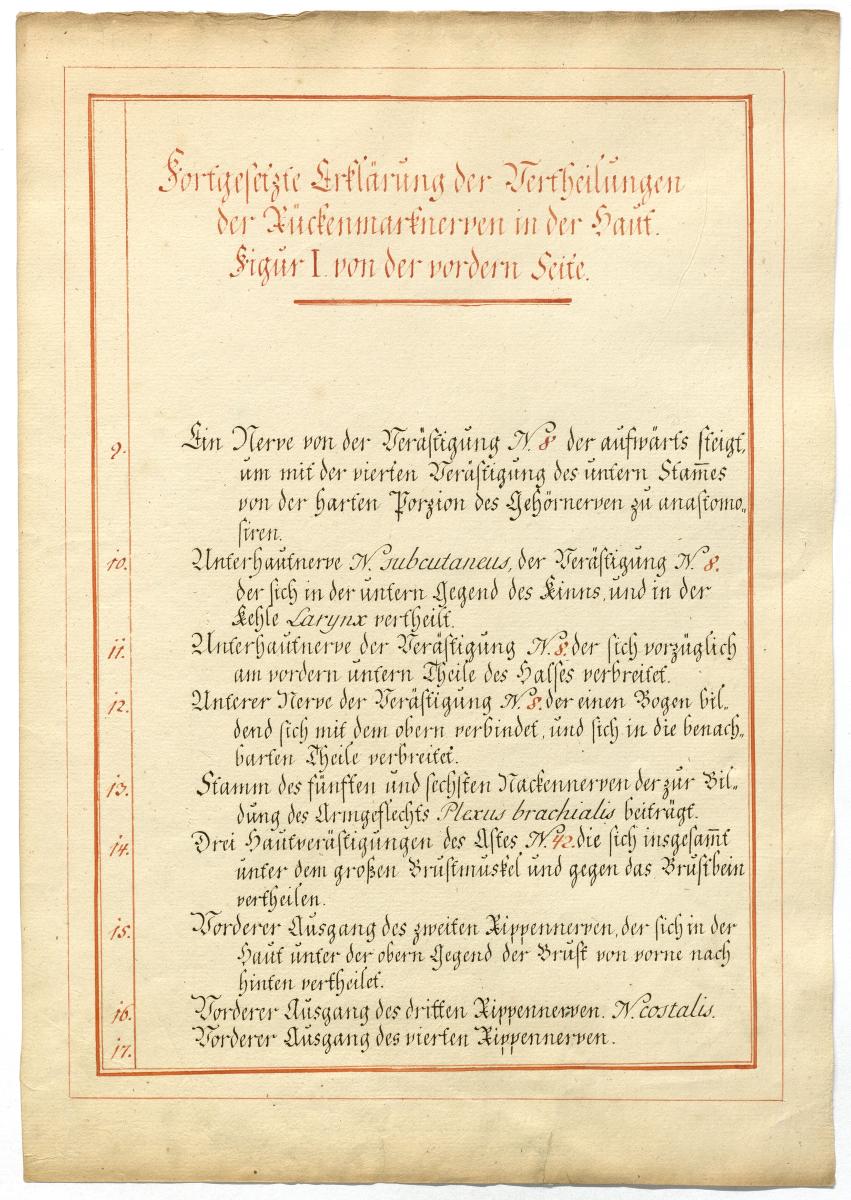 Fortgesetzte Erklärung der Vertheilungen
der Rückenmarknerven in der Haut.
Figur I. von der vordern Seite.
9. Ein Nerve von der Verästigung N. 8 der aufwärts steigt,
um mit der vierten Verästigung des untern Stam̅es
von der harten Porzion des Gehörnerven zu anastomo„
siren.
10. Unterhautnerve N. subcutaneus, der Verästigung N. 8.
der sich in der untern Gegend des Kinns, und in der
Kehle Larynx vertheilt.
11. Unterhautnerve der Verästigung N. 8. der sich vorzüglich
am vordern untern Theile des Halses verbreitet.
12. Unterer Nerve der Verästigung N. 8. der einen Bogen bil„
dend sich mit dem obern verbindet, und sich in die benach„
barten Theile verbreitet.
13. Stamm des fünften und sechsten Nackennerven der zur Bil„
dung des Armgeflechts Plexus brachialis beiträgt.
14. Drei Hautverästigungen des Astes N. 42. die sich insgesam̅t
unter dem großen Brustmuskel und gegen das Brustbein
vertheilen.
15. Vorderer Ausgang des zweiten Rippennerven, der sich in der
Haut unter der obern Gegend der Brust von vorne nach
hinten vertheilet.
16. Vorderer Ausgang des dritten Rippennerven. N. costalis.
17. Vorderer Ausgang des vierten Rippennerven.